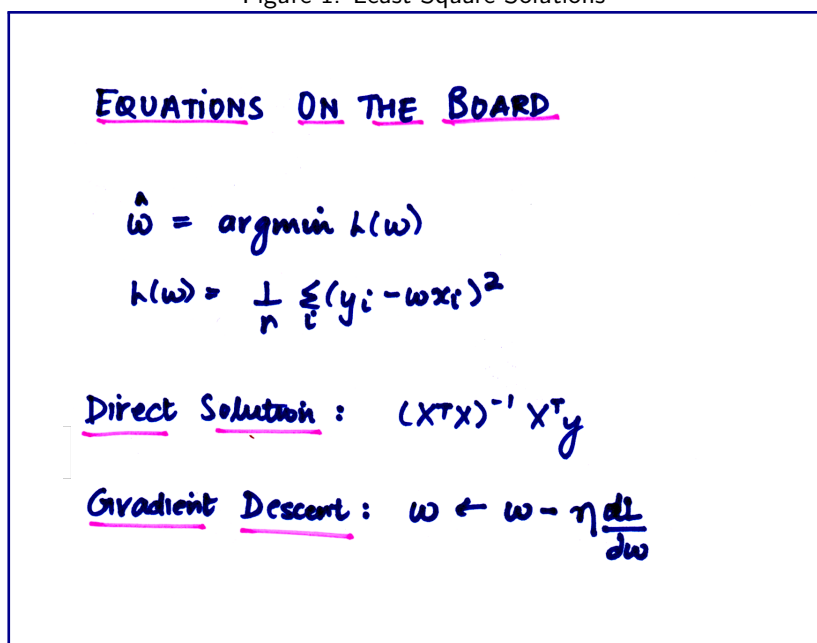 Figure 1: Least Square Solutions
EQUATIONS ON THE BOARD
ŵ = argmin L(w)
L(w) = 1/n Σ_i (y_i - wx_i)^2
Direct Solution : (X^T X)^-1 X^T y
Gradient Descent : w ← w - η dL/dw